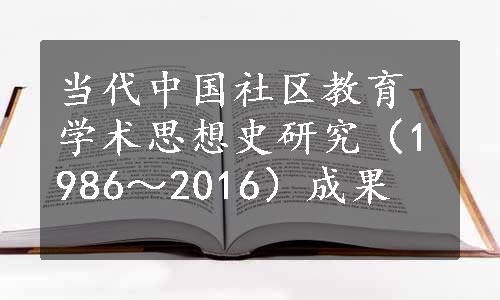 当代中国社区教育
学术思想史研究（1
986～2016）成果